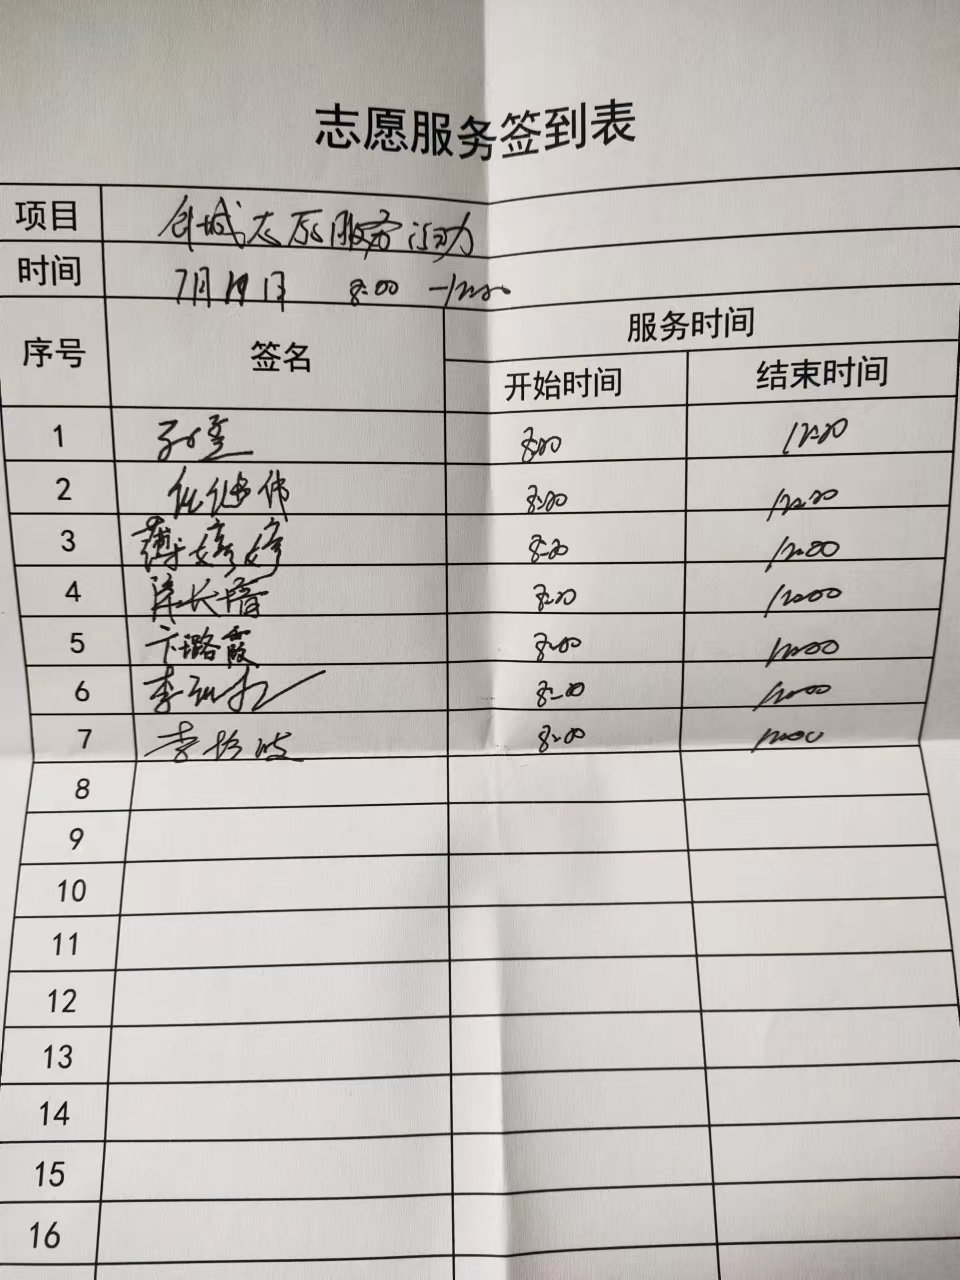 志愿服务签到表
项目 创城志愿服务活动
时间 7月19日 8:00 -12:00
序号 签名 服务时间
开始时间 结束时间
1 8:00 12:00
2 8:00 12:00
3 薄婷婷 8:00 12:00
4 8:00 12:00
5 卞璐霞 8:00 12:00
6 李 8:00 12:00
7 李 8:00 12:00
8
9
10
11
12
13
14
15
16